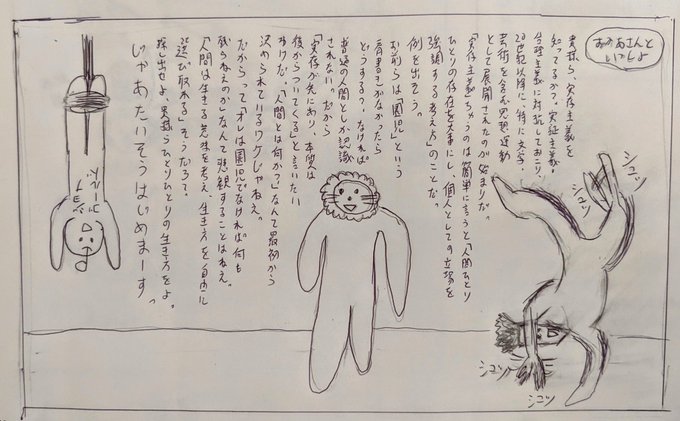 おかあさんと
いっしょ
貴様ら、実存主義を
知ってるか?実証主義・
合理主義に対抗しておこり、
20世紀以降に、特に文学・
芸術を含む思想運動
として展開されたのが始まりだ。
「実存主義」ちゅうのは簡単に言うと「人間ひとり
ひとりの存在を大事にし、個人としての立場を
強調する考え方」のことだ。
例を出そう。
お前らは「園児」という
肩書きがなかったら
どうする?、なければ
普通の人間としか認識
されない。だから
「実存が先にあり、本質は
後からついてくる」と言いたい
わけだ。「人間とは何か?」なんて最初から
決められているワケじゃねぇ。
だからって「オレは園児でなければ何も
残らねぇのか」なんて悲観することはねぇ。
「人間は生きる意味を考え生き方を自由に
選び取れる」そうだろ?
探し出せよ、貴様らひとりひとりの生き方をよ。
じゃあたいそうはじめまーす"
シュッ
シュッ
シュッ
シュッ